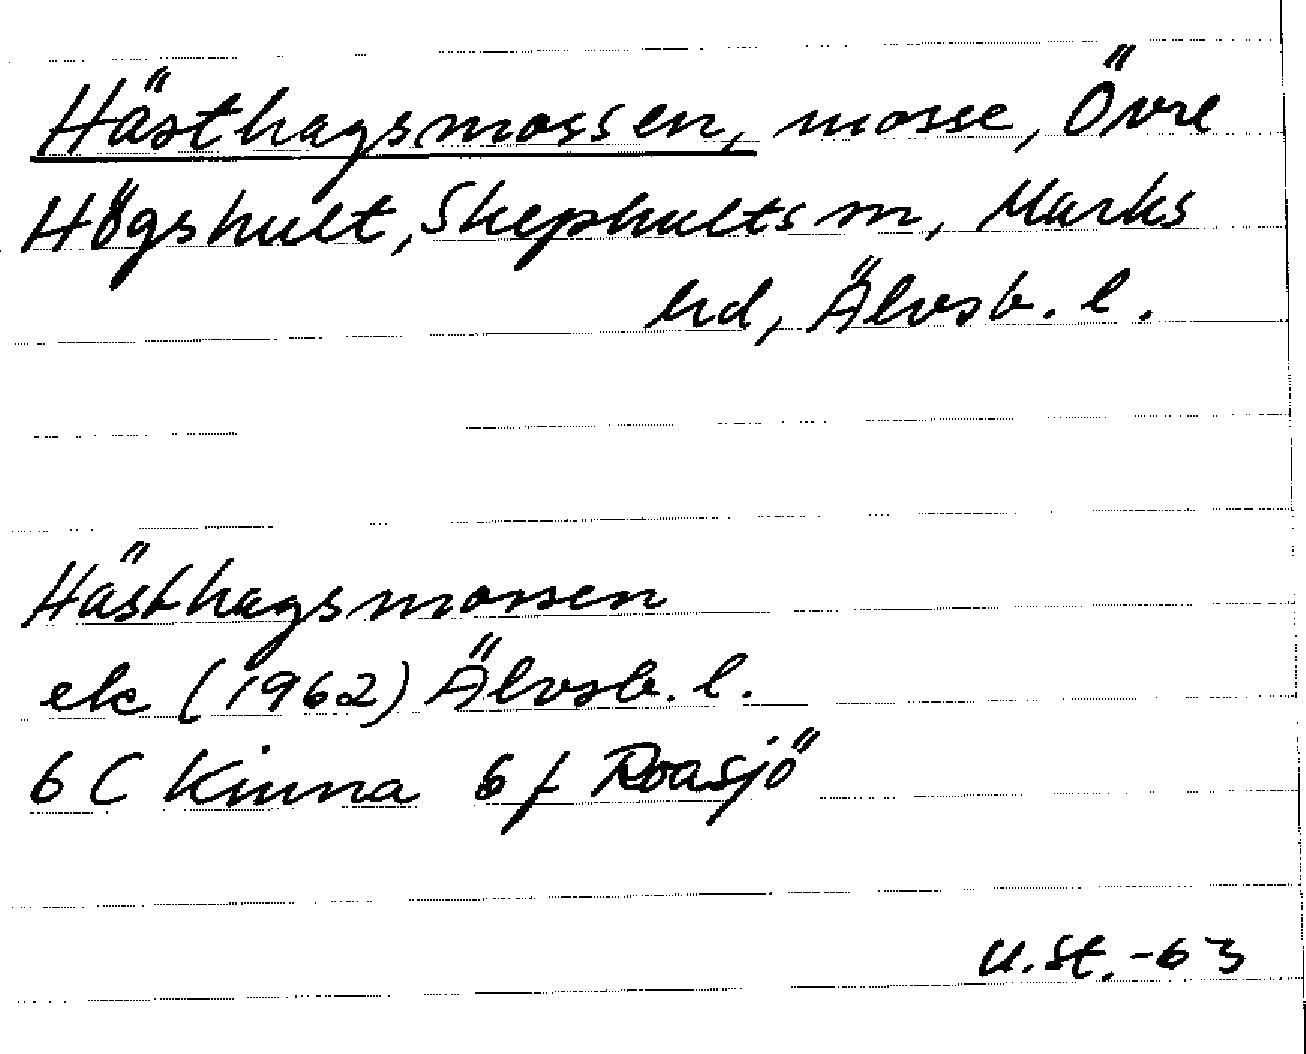 Hästhagsmossen, mosse, Övre
Högshult, Skephults sn, Marks
hd, Älvsb. l.
Hästhagsmossen
ek (1962) Älvsb. l.
6 C Kinna 6 f Roasjö
U.St.-63